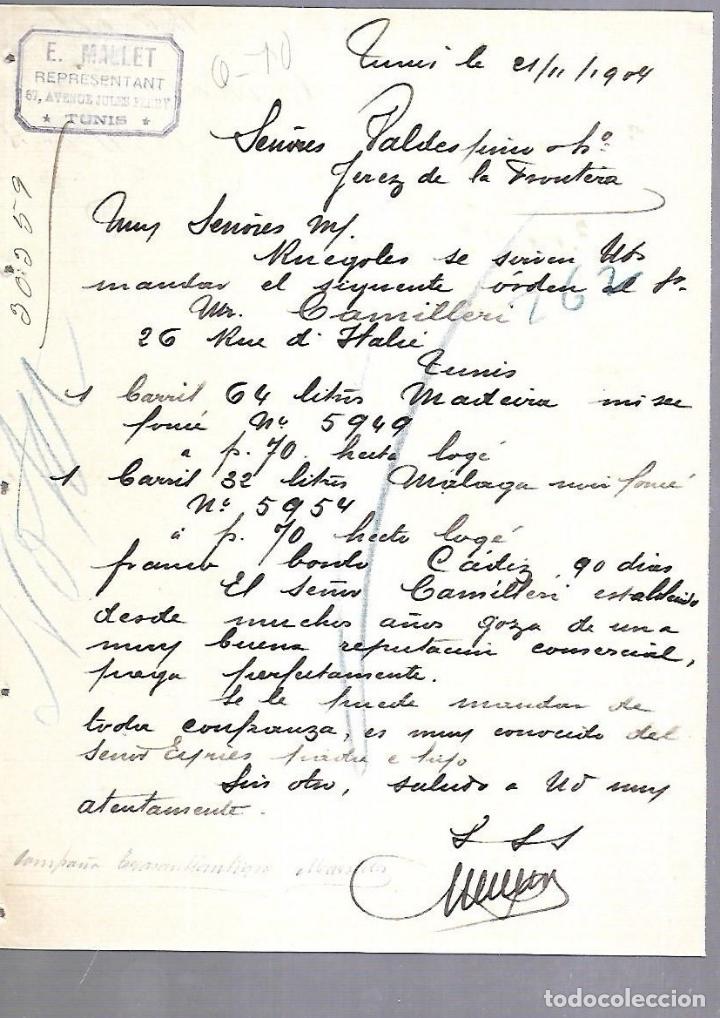 E. MALLET
REPRESENTANT
67, AVENUE JULES FERRY
★ TUNIS ★
Tunis le 21/11/1904
Señores Valdespino y Ho
Jerez de la Frontera
Muy Señores M/.
Ruegoles se sirvan Uds
mandar el siguiente órden al Sr.
Mr. Camilleri
26 Rue d'Italie
Tunis
1 Barril 64 litros Madeira
foncé No 5949
a p. 70. hecto logé
1 Barril 32 litros Málaga noir foncé
No 5954
a p. 70 hecto logé
franco bordo Cádiz 90 dias
El señor Camilleri establecido
desde muchos años goza de una
muy buena reputacion comercial,
paga perfectamente.
Se le puede mandar de
toda confianza, es muy conocido del
Señor padre e hijo
Sin otro, saludo a Ud muy
atentamente.
S S S
30259
todocoleccion